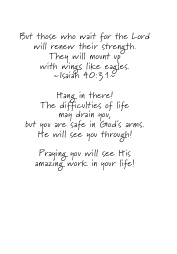 But those who wait for the Lord
will renew their strength.
They will mount up
with wings like eagles.
~Isaiah 40:31~
Hang in there!
The difficulties of life
may drain you,
but you are safe in God's arms.
He will see you through!
Praying you will see His
amazing work in your life!